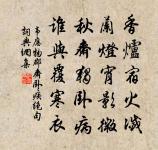 香爐宿火滅
蘭燈宵影微
秋齋獨臥病
誰與覆寒衣
韋應物郡齋臥疾絕句
詞典網集